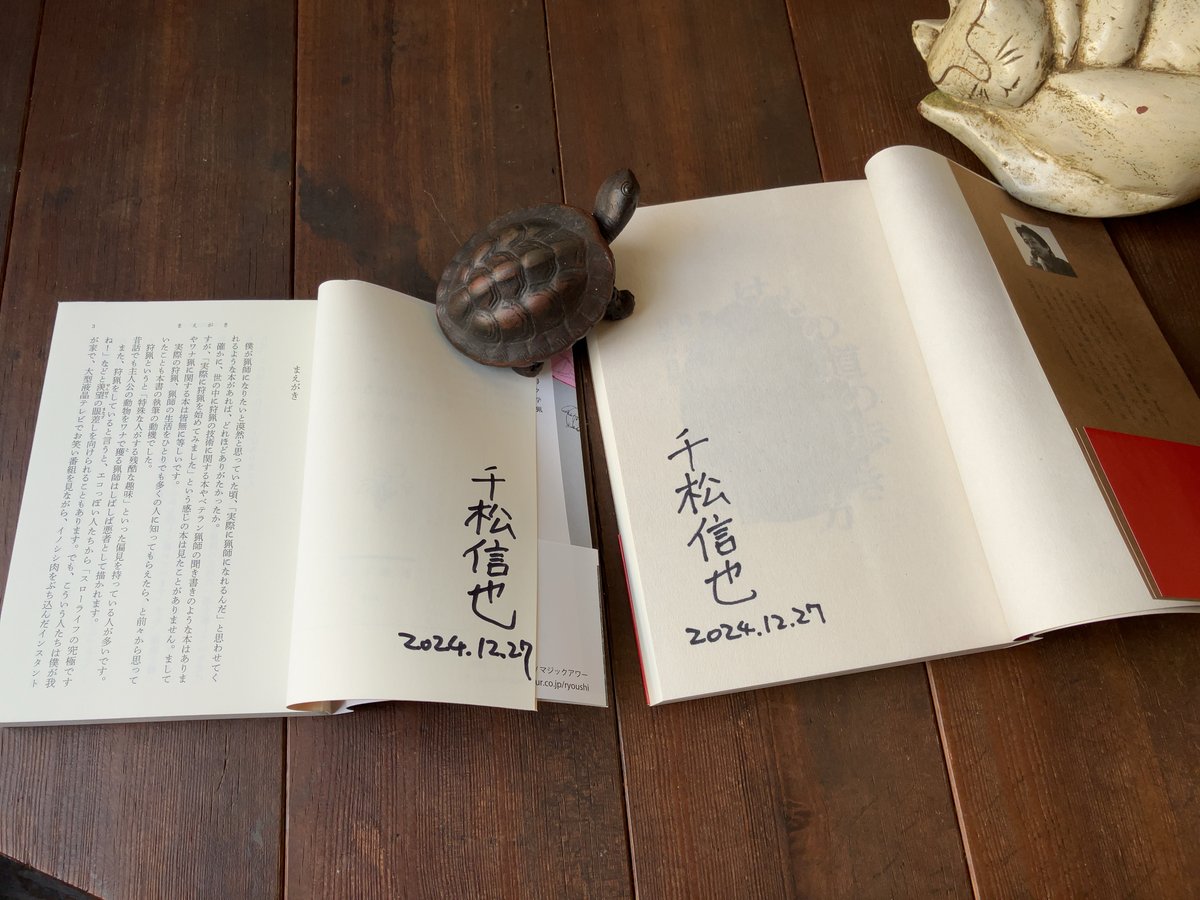 まえがき
3
まえがき
僕が猟師になりたいと漠然と思っていた頃、「実際に猟師になれるんだ」と思わせてく
れるような本があれば、どれほどありがたかったか。
確かに、世の中に狩猟の技術に関する本やベテラン猟師の聞き書きのような本はありま
すが、「実際に狩猟を始めてみました」という感じの本は見たことがありません。まして
やワナ猟に関する本は皆無に等しいです。
実際の狩猟、猟師の生活をひとりでも多くの人に知ってもらえたら、と前々から思って
いたことも本書の執筆の動機でした。
狩猟というと「特殊な人がする残酷な趣味」といった偏見を持っている人が多いです。
昔話でも主人公の動物をワナで獲る猟師はしばしば悪者として描かれます。
また、狩猟をしていると言うと、エコっぽい人たちから「スローライフの究極です
ね！」などと羨望の眼差しを向けられることもあります。でも、こういう人たちは僕が我
が家で、大型液晶テレビでお笑い番組を見ながら、イノシシ肉をぶち込んだインスタント
千松信也
2024.12.27
マジックアワー
ur.co.jp/ryoushi
千松信也
2024.12.27